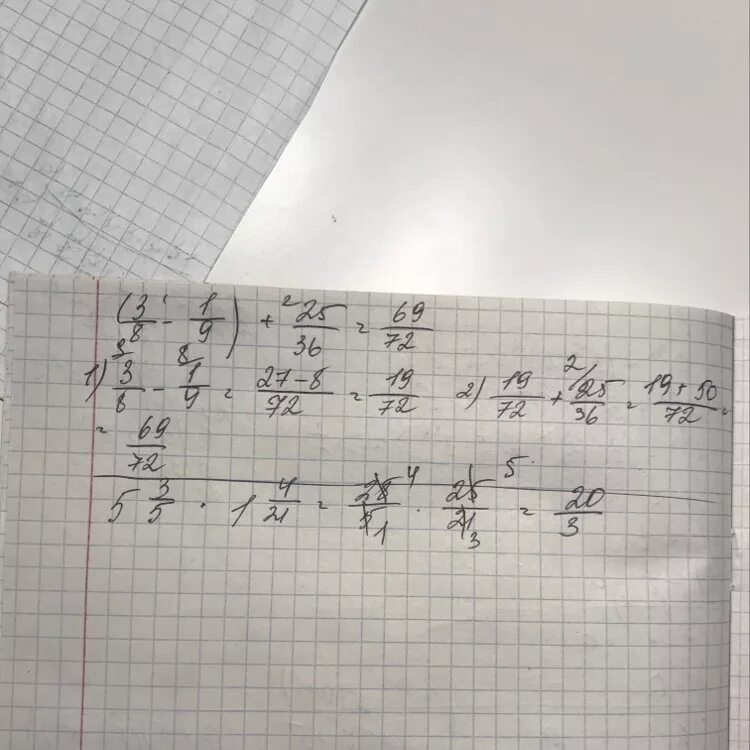 (3/8 - 1/9) + ²25/36 = 69/72
1) 3/8 - 1/9 = 27-8/72 = 19/72 2) 19/72 + 2/25/36 = 19+50/72 =
= 69/72
5 3/5 · 1 4/21 = 28 4/5 1 · 25 5/21 3 = 20/3